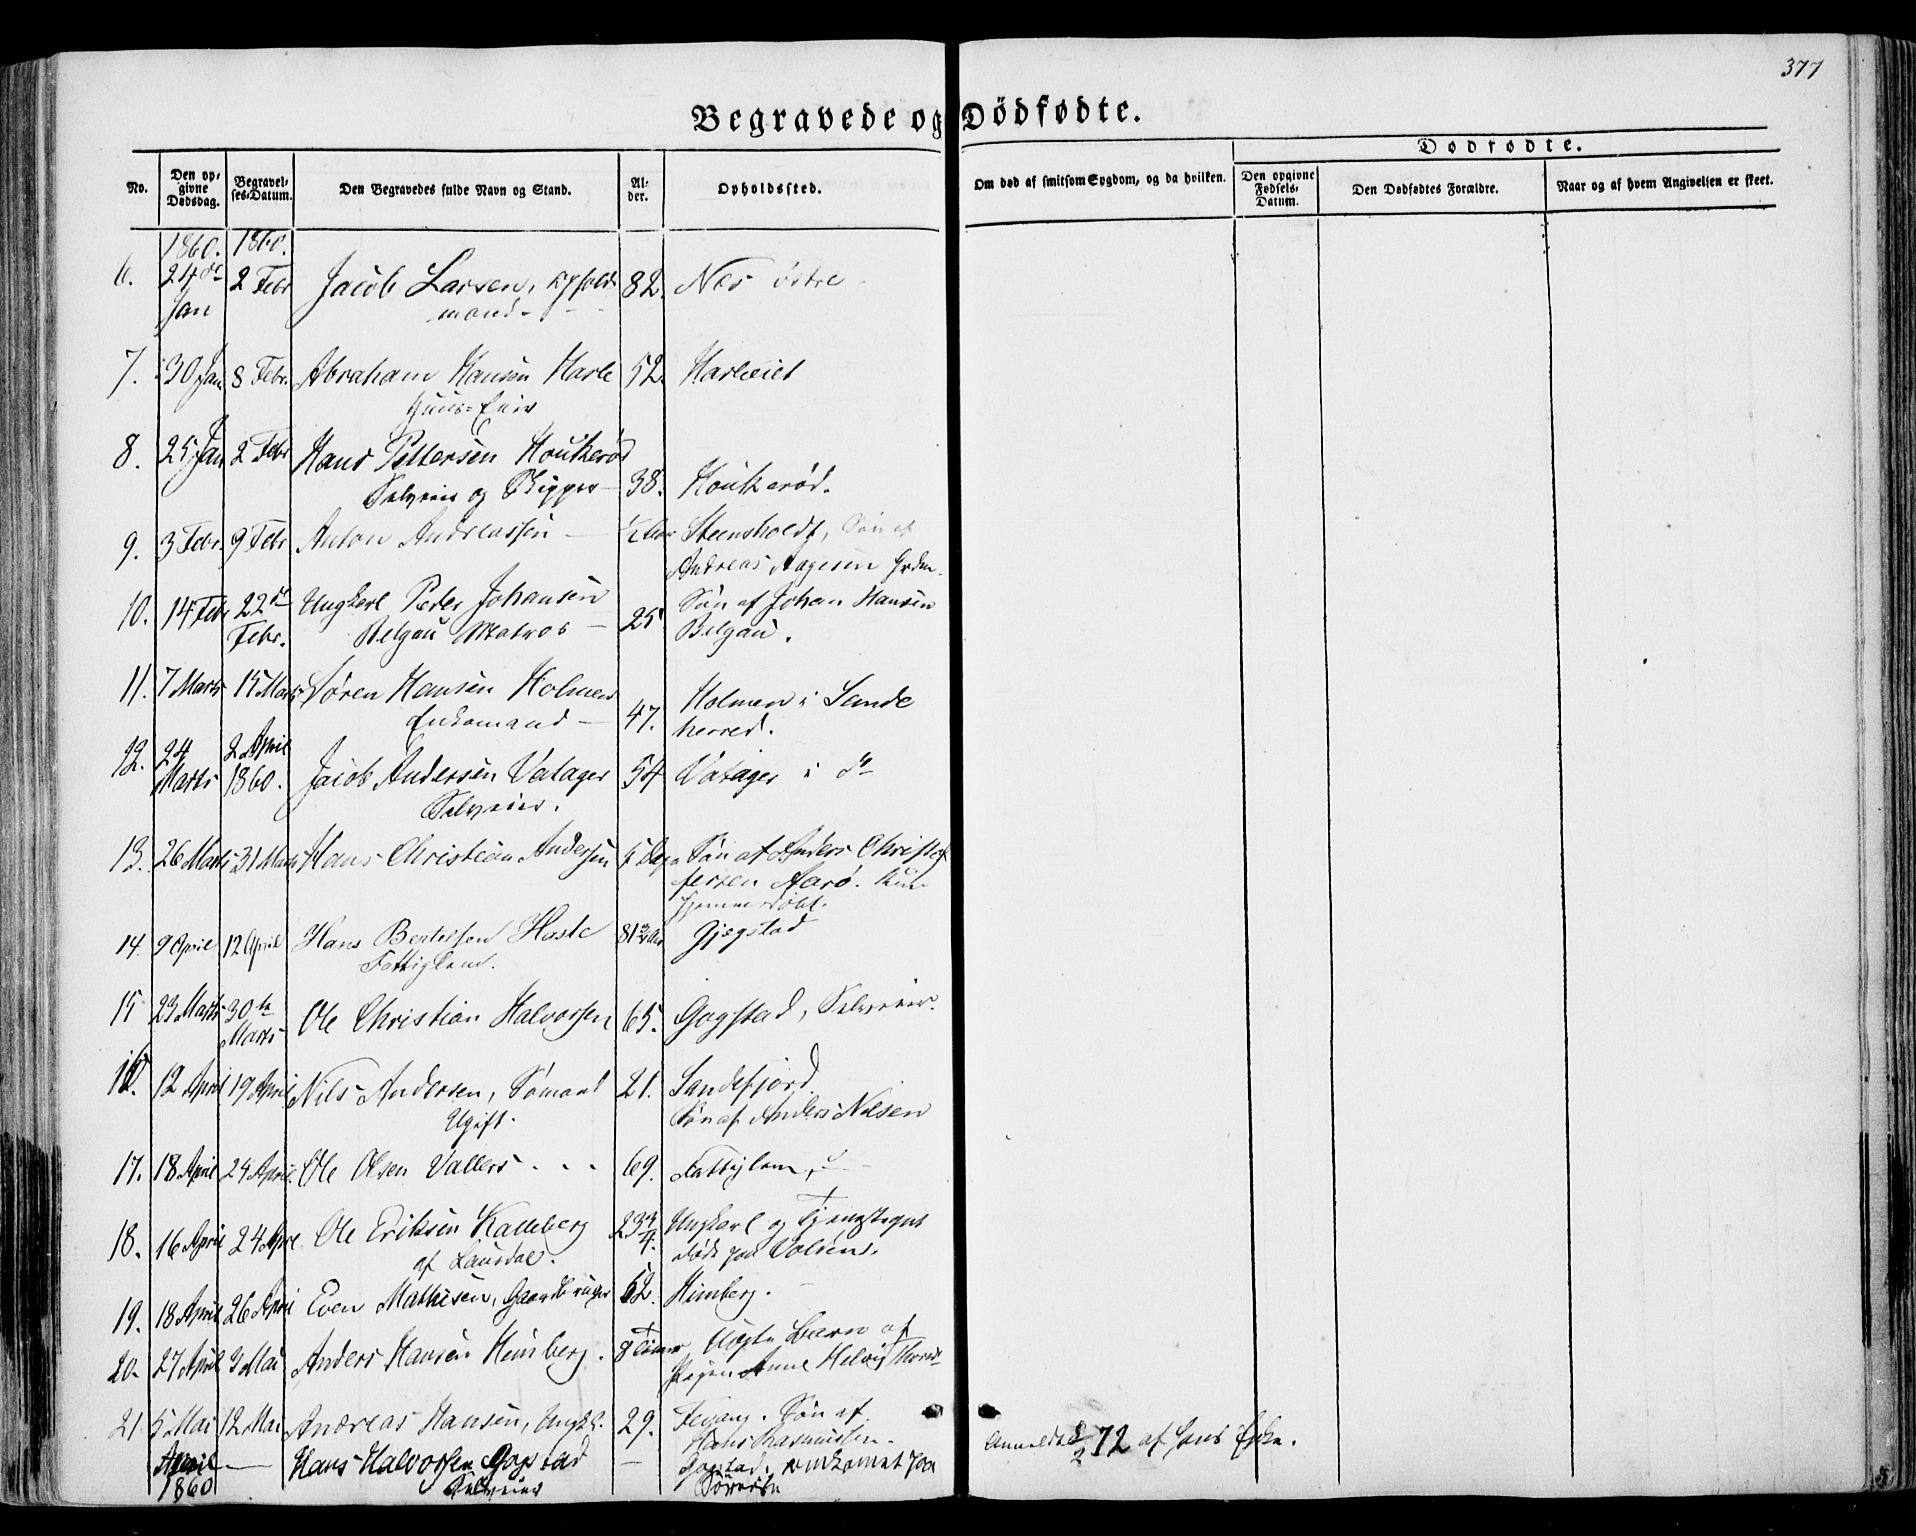 377
Begravede og Dödfødte.
Dødfødte.
No.
Den opgivne Dødsdag.
Begravelses-Datum.
Den Begravedes fulde Navn og Stand.
Alder.
Opholdssted.
Om død af smitsom Sygdom, og da hvilken.
Den opgivne Fødsels-Datum.
Den Dødfødtes Forældre.
Naar og af hvem Angivelsen er skeet.
1860. 1860.
6. 24de Jan 2 Febr Jacob Larsen, 82. Nes östre
mand
7. 30 Jan 8 Febr. Abraham Hansen Harle 52. Harleeiet
Huus-
8. 25 Jan 2 Febr Hans Pettersen Houkerød
Selveier og Skipper 38. Houkerød.
9. 3 Febr. 9 Febr Anton Andreassen ½ Aar Steensholdt, Søn af
Andreas Aagesen
10. 14 Febr 22de Febr. Ungkarl Peder Johansen 25 Søn af Johan Hansen
Helgau Matros Helgau.
11. 7 Marts 15 Marts Sören Hansen Holmen Holmen i Sande
Enkemand 47. herred.
12. 24 Marts 2 April 1860. Jacob Andersen Vatager 54 Vatager i do
Selveier.
13. 26 Marts 31 Marts Hans Christian Andersen 5 Dage Søn af Anders Christof
fersen Aarö.
hjemmedöbt.
14. 9 April 12 April Hans Bertelsen Hasle 81¾ Aar Gjegstad
Fattiglem.
15 23 Marts 30te Marts Ole Christian Halvorsen 65. Gogstad, Selveier.
16. 12 April 19 April Nils Andersen, Sömand 21. Sandefjord.
Ugift. Søn af Anders Nilsen
17. 18 April 24 April Ole Olsen Vallers 69. Fattiglem,
18. 16 April 24 Apr Ole Eriksen Kalleberg 23¾. Ungkarl og Tjenestegut
af Lausdal. död paa
19. 18 April 26 April Even Mathisen, Gaardbruger 52. Himberg.
20. 27 April 3 Mai Anders Hansen Himberg. 8 Timer, Uægte Barn af
Pigen Anne Helvig
21 5 Mai 12 Mai Andreas Hansen, Ungk. 29. Fevang. Søn af
Hans Rasmussen.
April 1860 — Hans Halvorsen Gogstad — Gogstad. omkommet paa
Selveier Søreise
Anmeldt 2/2 72 af hans Enke.